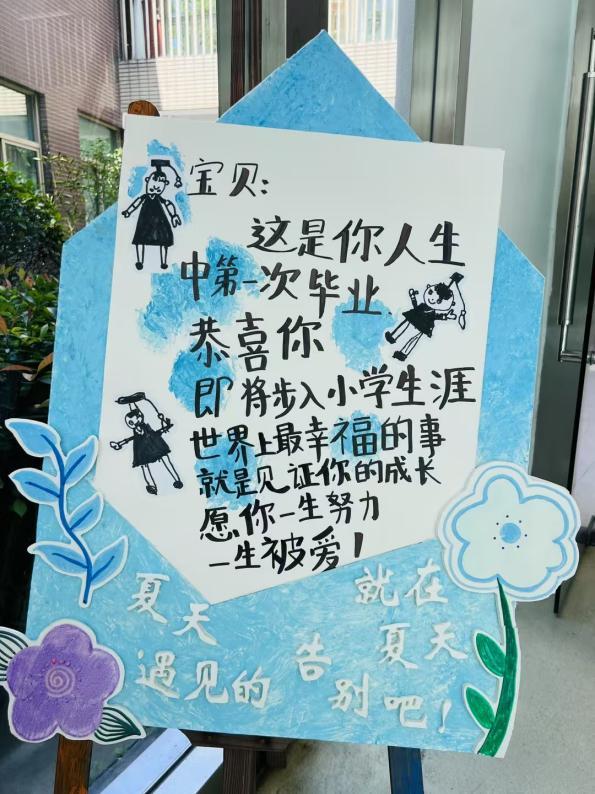 宝贝:
这是你人生
中第一次毕业
恭喜你
即将步入小学生涯
世界上最幸福的事
就是见证你的成长
愿你一生努力
一生被爱!
夏天
遇见的
就在
夏天
告别吧!